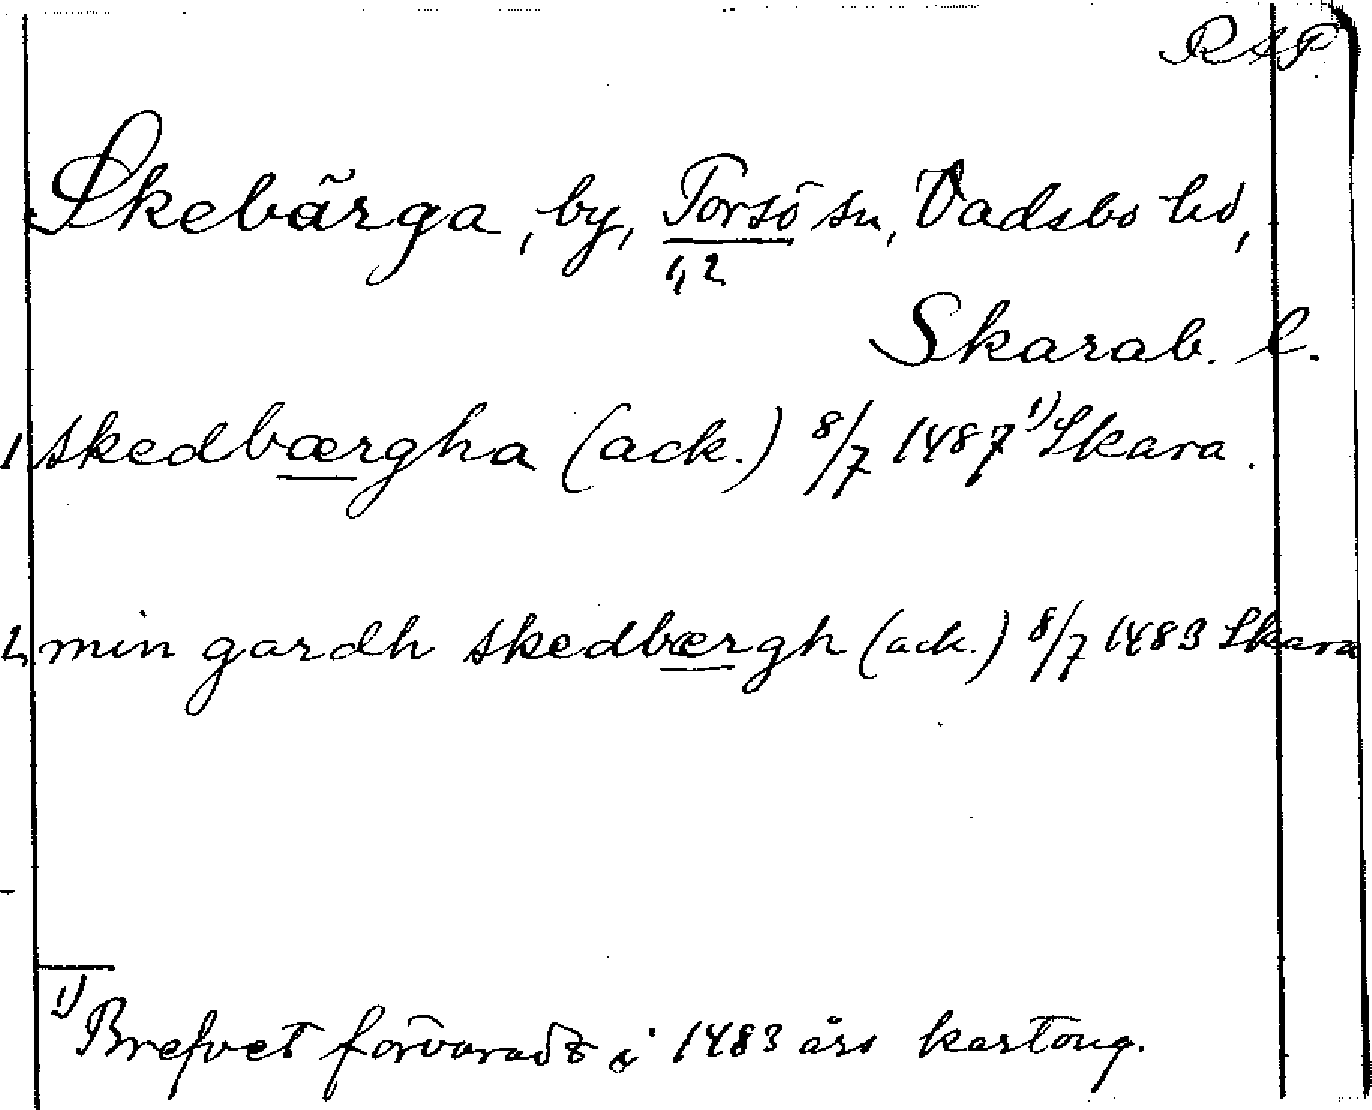 RAP
Skebärga, by, Torsö sn, Vadsbo hd,
1, 2
Skarab. l.
1 skedbærgha (ack.) 8/7 1487 1) Skara.
2, min gardh skedbærgh (ack.) 8/7 1483 Skara
1) Brefvet förvaradt i 1483 års kartong.